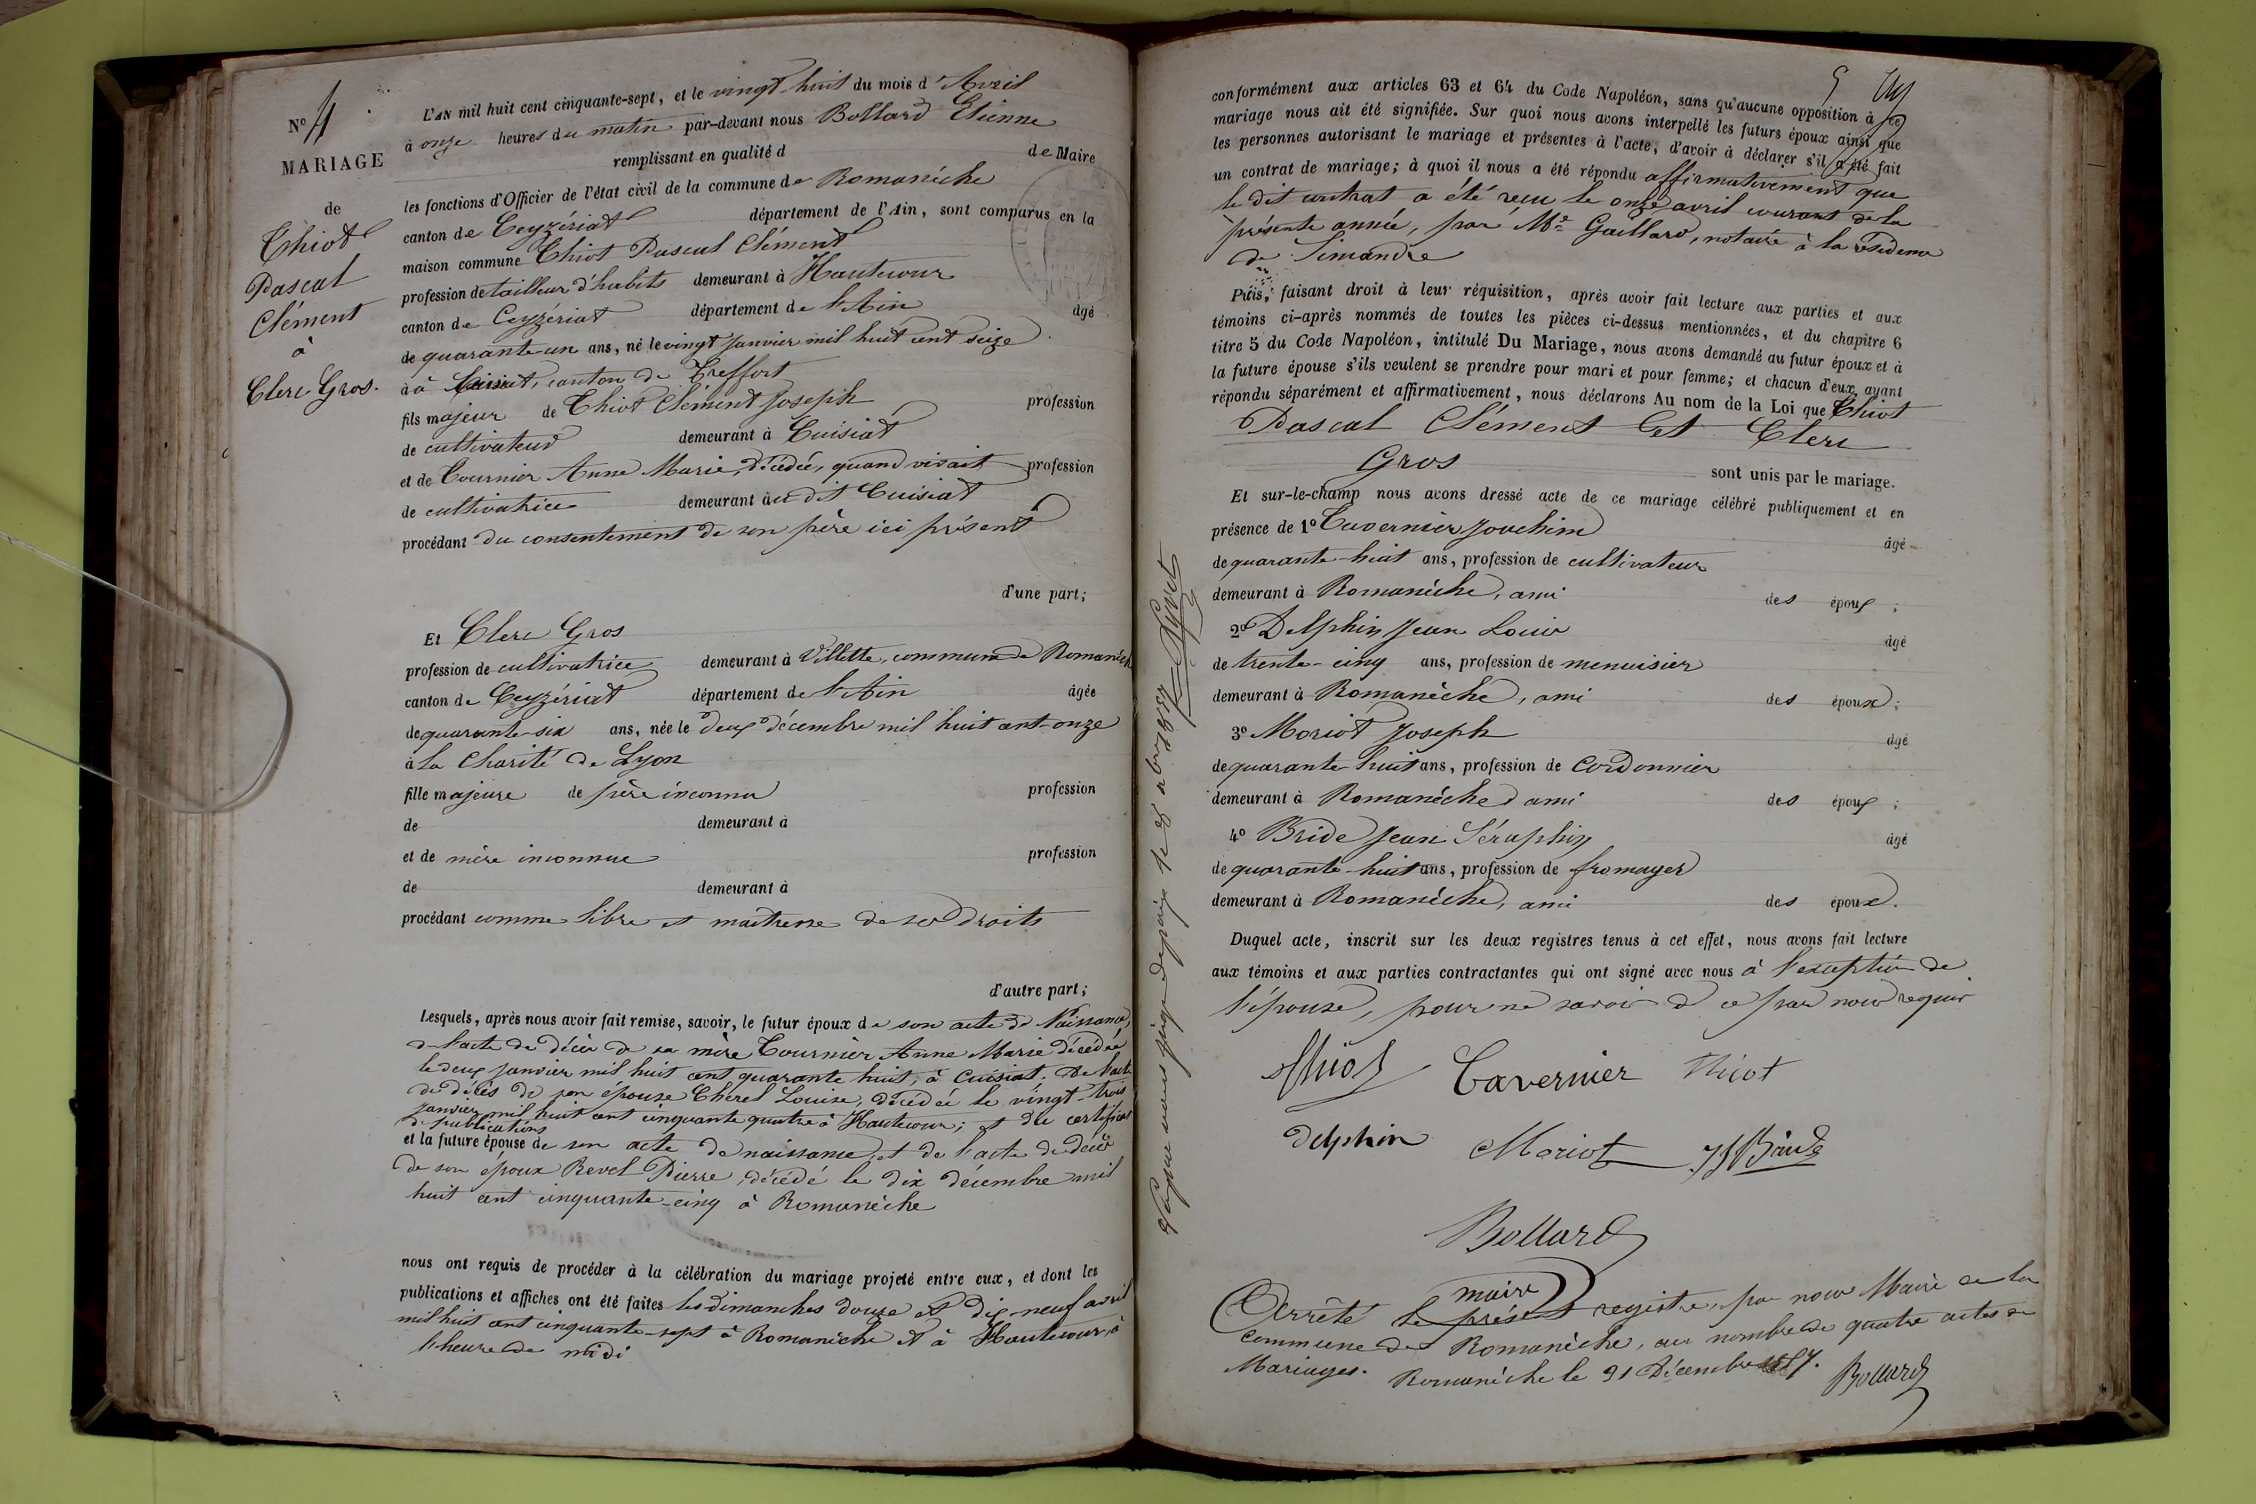 N° 4
MARIAGE
de
Thiot
Pascal
Clément
à
Clerc Gros.
L'AN mil huit cent cinquante-sept, et le vingt-huit du mois d'Avril
à onze heures du matin par-devant nous Bollard Etienne
remplissant en qualité d de Maire
les fonctions d'Officier de l'état civil de la commune de Romanèche
canton de Ceyzériat département de l'Ain, sont comparus en la
maison commune Thiot Pascal Clément
profession de tailleur d'habits demeurant à Hautecour
canton de Ceyzériat département de l'Ain âgé
de quarante-un ans, né le vingt Janvier mil huit cent seize
à à Cuisiat, canton de Treffort
fils majeur de Thiot Clément Joseph profession
de cultivateur demeurant à Cuisiat
et de Tournier Anne Marie, décédée, quand vivait profession
de cultivatrice demeurant à u dit Cuisiat
procédant du consentement de son père ici présent
d'une part;
Et Clerc Gros
profession de cultivatrice demeurant à Villette, commune de Romanèch
canton de Ceyzériat département de l'Ain âgée
de quarante-six ans, née le deux décembre mil huit cent-onze
à La Charité de Lyon
fille majeure de père inconnu profession
de demeurant à
et de mère inconnue profession
de demeurant à
procédant comme libre et maîtresse de ses droits
d'autre part;
Lesquels, après nous avoir fait remise, savoir, le futur époux de son acte de Naissance,
de l'acte de décès de sa mère Tournier Anne Marie décédée
le deux janvier mil huit cent quarante huit, à Cuisiat. De l'acte
de décès de son épouse Cherel Louise, décédée le vingt-trois
janvier mil huit cent cinquante quatre à Hautecour; et du certificat
de publications
et la future épouse de son acte de naissance, et de l'acte de décès
de son époux Revel Pierre, décédé le dix décembre mil
huit cent cinquante-cinq à Romanèche
nous ont requis de procéder à la célébration du mariage projeté entre eux, et dont les
publications et affiches ont été faites les dimanches douze et dix-neuf avril
mil huit cent cinquante-sept à Romanèche et à Hautecour, à
l'heure de midi
5
conformément aux articles 63 et 64 du Code Napoléon, sans qu'aucune opposition à ce
mariage nous ait été signifiée. Sur quoi nous avons interpellé les futurs époux ainsi que
les personnes autorisant le mariage et présentes à l'acte, d'avoir à déclarer s'il a été fait
un contrat de mariage; à quoi il nous a été répondu affirmativement que
le dit contrat a été reçu le onze avril courant de la
présente année, par Me Gaillard, notaire à la résidence
de Simandre
Puis, faisant droit à leur réquisition, après avoir fait lecture aux parties et aux
témoins ci-après nommés de toutes les pièces ci-dessus mentionnées, et du chapitre 6
titre 5 du Code Napoléon, intitulé Du Mariage, nous avons demandé au futur époux et à
la future épouse s'ils veulent se prendre pour mari et pour femme; et chacun d'eux, ayant
répondu séparément et affirmativement, nous déclarons Au nom de la Loi que Thiot
Pascal Clément Et Clerc
Gros
sont unis par le mariage.
Et sur-le-champ nous avons dressé acte de ce mariage célébré publiquement et en
présence de 1° Tavernier Joachim âgé
de quarante-huit ans, profession de cultivateur
demeurant à Romanèche, ami des époux;
2° Delphin Jean Louis âgé
de trente-cinq ans, profession de menuisier
demeurant à Romanèche, ami des époux;
3° Moriot Joseph âgé
de quarante-huit ans, profession de Cordonnier
demeurant à Romanèche ami des époux;
4° Bride Jean Séraphin âgé
de quarante-huit ans, profession de fromager
demeurant à Romanèche, ami des époux.
Duquel acte, inscrit sur les deux registres tenus à cet effet, nous avons fait lecture
aux témoins et aux parties contractantes qui ont signé avec nous à l'exception de
l'épouse, pour ne savoir de ce par nous requis
Thiot Tavernier Thiot
delphin Moriot JSBride
Bollard
maire
Arrêté le présent registre, par nous Maire de la
Commune de Romanèche, au nombre de quatre actes de
Mariages. Romanèche le 31 Décembre 1857. Bollard